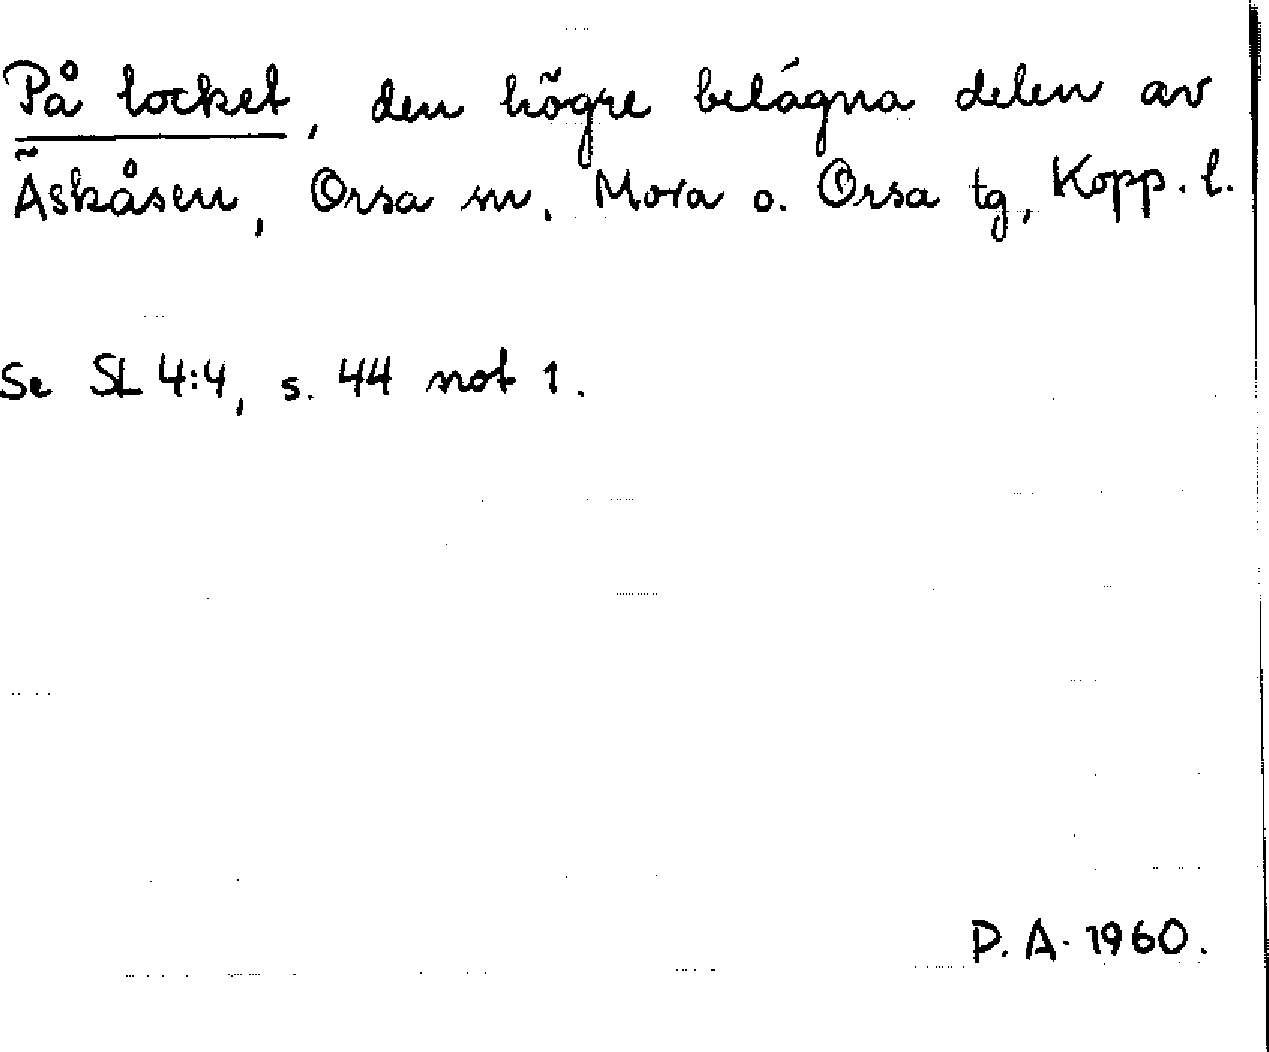 På locket, den högre belägna delen av
Äskåsen, Orsa sn. Mora o. Orsa tg, Kopp. l.
Se SL 4:4, s. 44 not 1.
D. A. 1960.